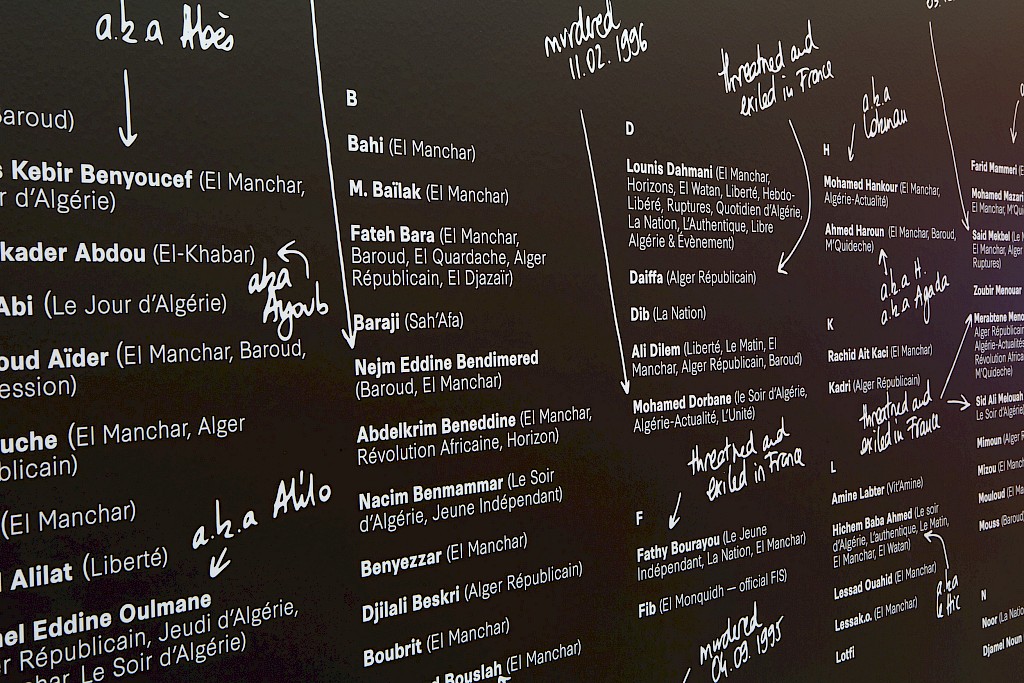 a.k.a Abès
Baroud)
Kebir Benyoucef (El Manchar,
d'Algérie)
kader Abdou (El-Khabar)
aka
Ayoub
Abi (Le Jour d'Algérie)
oud Aïder (El Manchar, Baroud,
ession)
uche (El Manchar, Alger
blicain)
(El Manchar)
a.k.a Alilo
Alilat (Liberté)
el Eddine Oulmane
Républicain, Jeudi d'Algérie,
Le Soir d'Algérie)
B
Bahi (El Manchar)
M. Baïlak (El Manchar)
Fateh Bara (El Manchar,
Baroud, El Quardache, Alger
Républicain, El Djazaïr)
Baraji (Sah'Afa)
Nejm Eddine Bendimered
(Baroud, El Manchar)
Abdelkrim Beneddine (El Manchar,
Révolution Africaine, Horizon)
Nacim Benmammar (Le Soir
d'Algérie, Jeune Indépendant)
Benyezzar (El Manchar)
Djilali Beskri (Alger Républicain)
Boubrit (El Manchar)
Bouslah (El Manchar)
murdered
11.02.1996
threatned and
exiled in France
D
Lounis Dahmani (El Manchar,
Horizons, El Watan, Liberté, Hebdo-
Libéré, Ruptures, Quotidien d'Algérie,
La Nation, L'Authentique, Libre
Algérie & Évènement)
Daiffa (Alger Républicain)
Dib (La Nation)
Ali Dilem (Liberté, Le Matin, El
Manchar, Alger Républicain, Baroud)
Mohamed Dorbane (le Soir d'Algérie,
Algérie-Actualité, L'Unité)
threatned and
exiled in France
F
Fathy Bourayou (Le Jeune
Indépendant, La Nation, El Manchar)
Fib (El Monquidh — official FIS)
murdered
04.09.1995
a.k.a
H
Mohamed Hankour (El Manchar,
Algérie-Actualité)
Ahmed Haroun (El Manchar, Baroud,
M'Quidech)
a.k.a H.
a.k.a Agada
K
Rachid Ait Kaci (El Manchar)
Kadri (Alger Républicain)
threatned and
exiled in France
L
Amine Labter (Vit'Amine)
Hichem Baba Ahmed (Le soir
d'Algérie, L'authentique, Le Matin,
El Manchar, El Watan)
Lessad Ouahid (El Manchar)
a.k.a
le Hic
Lessak.o. (El Manchar)
Lotfi
Farid Mammeri
Mohamed Mazari
El Manchar, M'Qui
Said Mekbel (Le
El Manchar, Alger
Ruptures)
Zoubir Menouar
Merabtene Meno
Alger Républicain
Algérie-Actualités
Révolution Africai
M'Quidech)
Sid Ali Melouah
Le Soir d'Algérie
Mimoun (Alger
Mizou (El Man
Mouloud (El Ma
Mouss (Baroud
N
Noor (La Natio
Djamel Noun